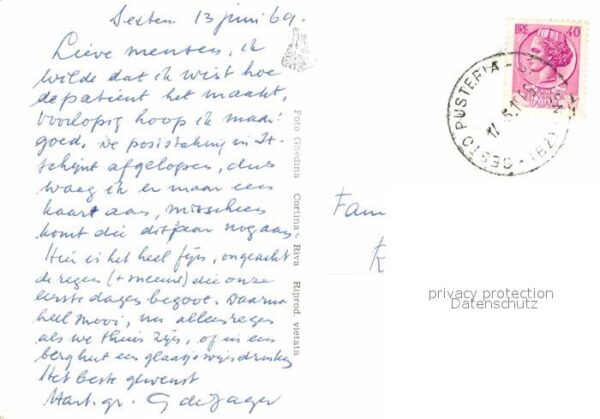 Sexten 13 juni 69.
Lieve mensen, ik
wilde dat ik wist hoe
de patient het maakt,
voorlopig hoop ik maar:
goed. De poststaking in It.
schijnt afgelopen, dus
waag ik er maar een
kaart aan, misschien
komt die dit jaar nog aan
Hier is het heel fijn, ongeacht
de regen (+ sneeuw) die onze
eerste dagen begoot. Daarna
heel mooi, nu alleen regen
als we thuis zijn, of in een
berghut een glaasje wijn drinken
Het beste gewenst
Hart. gr. G de Jager
Foto Ghedina Cortina - Riva Riprod. vietata
LIRE 40
ITALIANA
SESTO PUSTERIA
Fam
privacy protection
Datenschutz